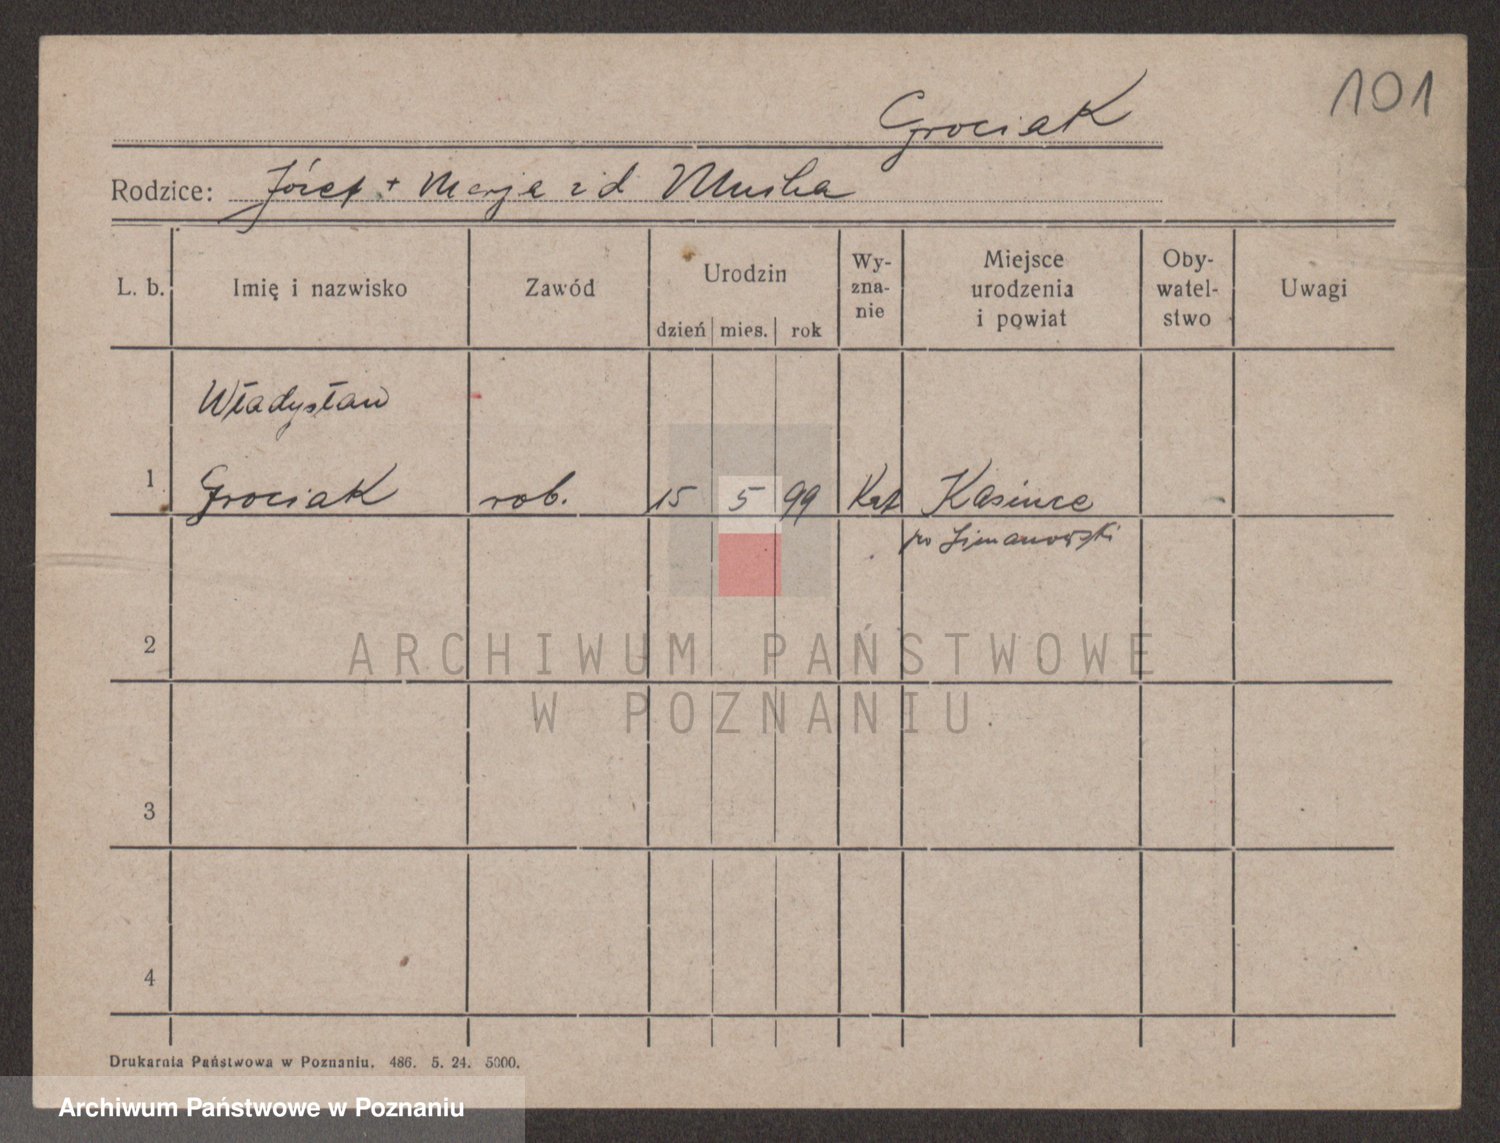 101
Grociak
Rodzice: Józef + Marja z d
L. b. Imię i nazwisko Zawód Urodzin dzień mies. rok Wy-zna-nie Miejsce urodzenia i powiat Oby-watel-stwo Uwagi
Władysław
1 Grociak rob. 15 5 99 Kat
2
ARCHIWUM PAŃSTWOWE
W POZNANIU
3
4
Drukarnia Państwowa w Poznaniu. 486. 5. 24. 5000.
Archiwum Państwowe w Poznaniu